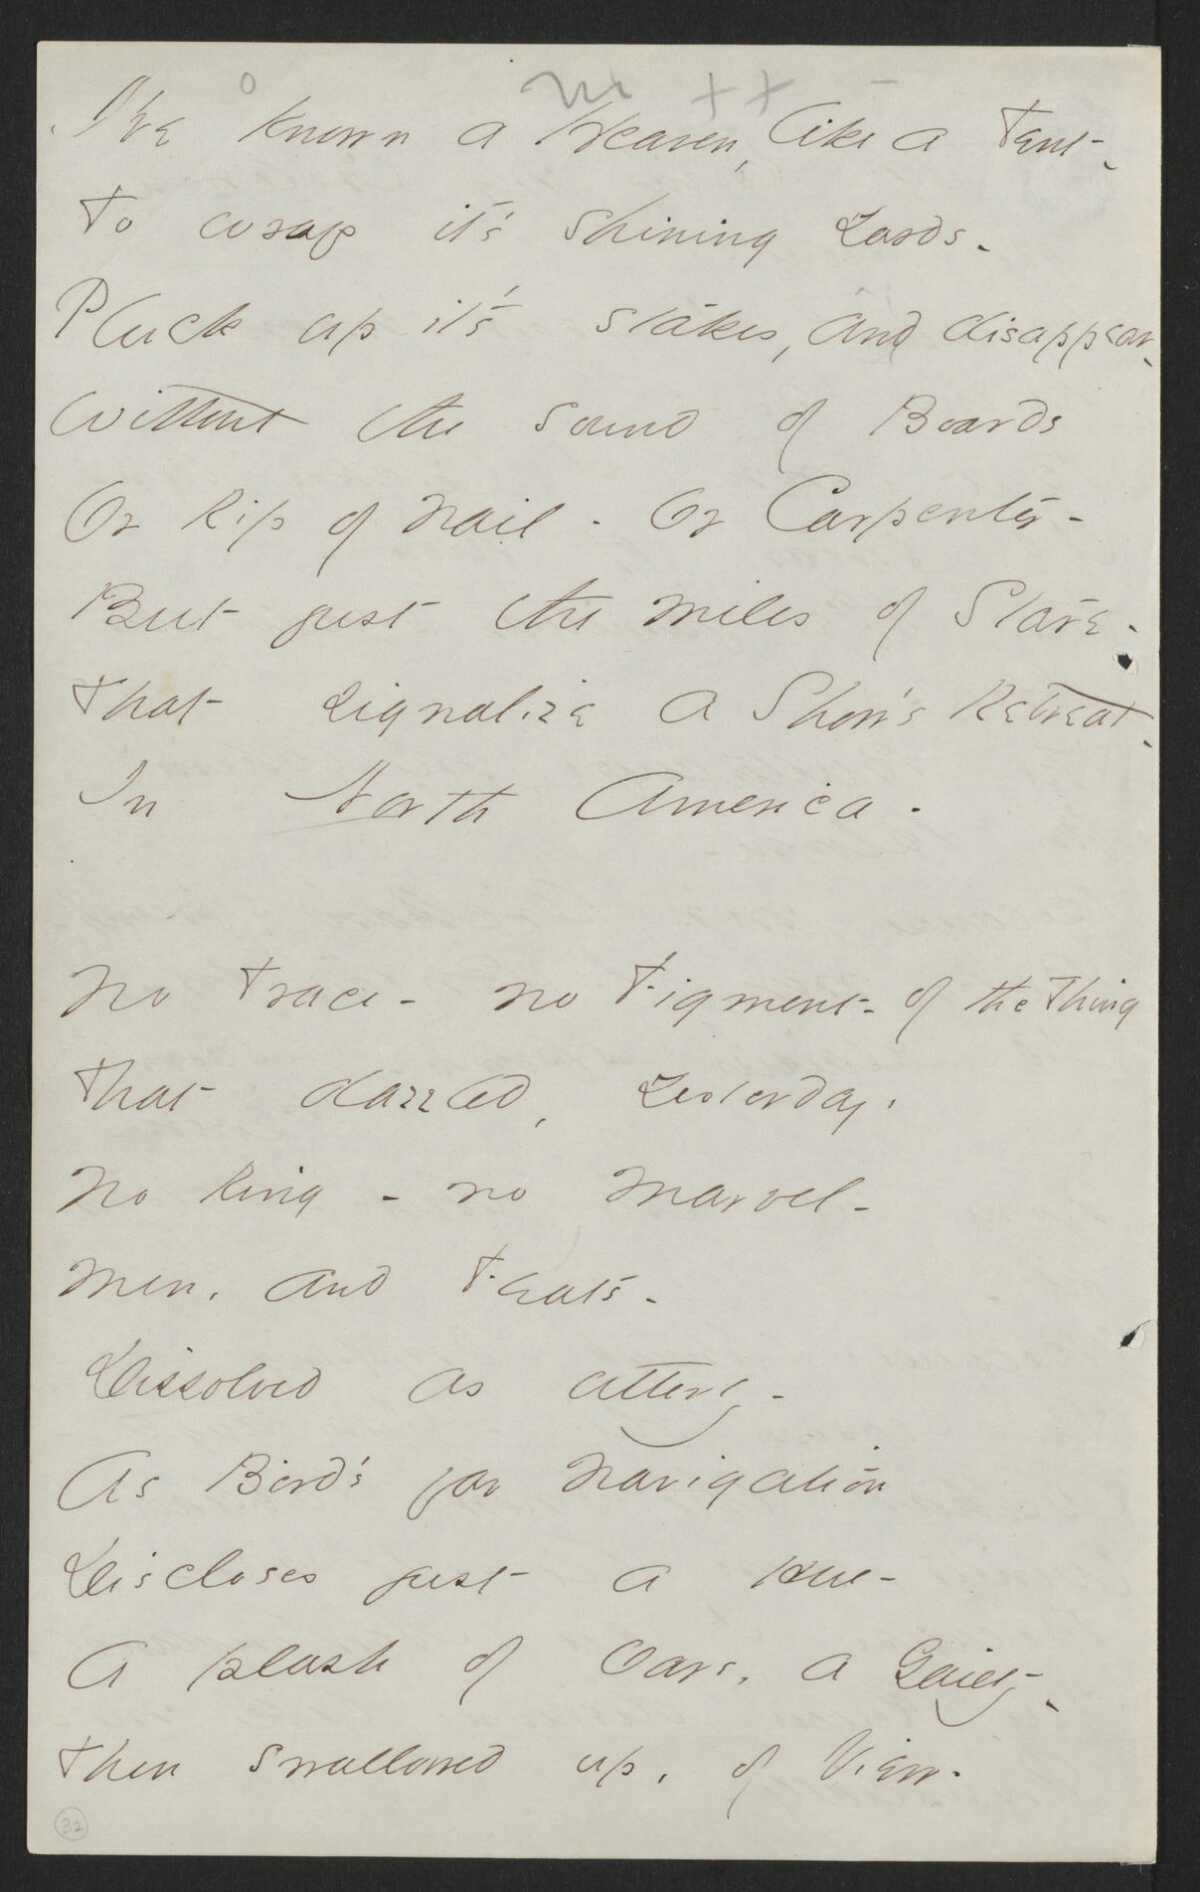 I've known a Heaven, like a Tent -
To wrap it's shining Yards -
Pluck up it's stakes, and disappear -
Without the sound of Boards
Or Rip of Nail - Or Carpenter -
But just the miles of Stare -
That signalize a Show's Retreat -
In North America -
No Trace - no Figment - of the Thing
That dazzled, Yesterday,
No Ring - no Marvel -
Men, and Feats -
Dissolved as utterly -
As Bird's far Navigation
Discloses just a Hue -
A plash of Oars, a Gaiety -
Then swallowed up, of View -
32